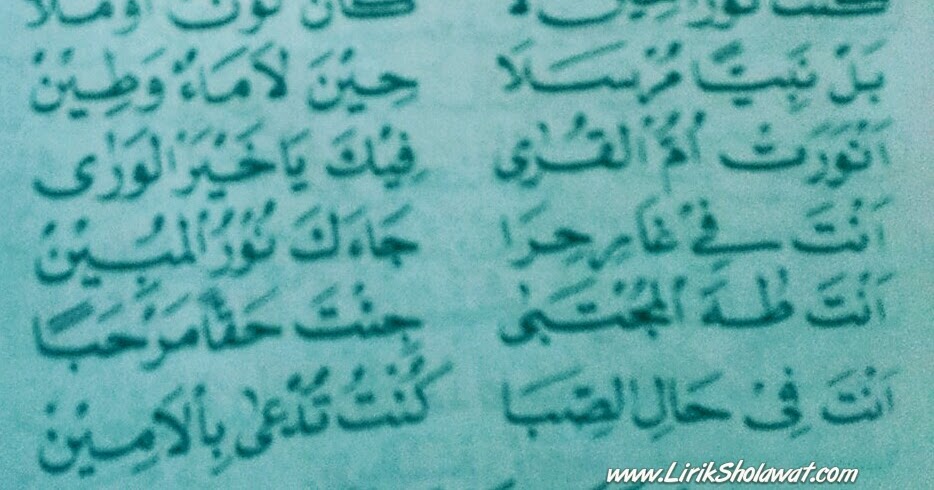 بَلْ نَبِيًّا مُرْسَلَا حِيْنَ لَا مَاءٌ وَطِيْنْ
اَنْوَرَتْ اُمُّ الْقُرٰى فِيْكَ يَا خَيْرَ الْوَرٰى
اَنْتَ فِيْ غَارِ حِرَا جَاءَكَ نُوْرُ الْمُبِيْنْ
اَنْتَ طٰهَ الْمُجْتَبٰى جِئْتَ حَقًّا مَرْحَبًا
اَنْتَ فِيْ حَالِ الصِّبَا كُنْتَ تُدْعٰى بِالْاَمِيْنْ
www.LirikSholawat.com